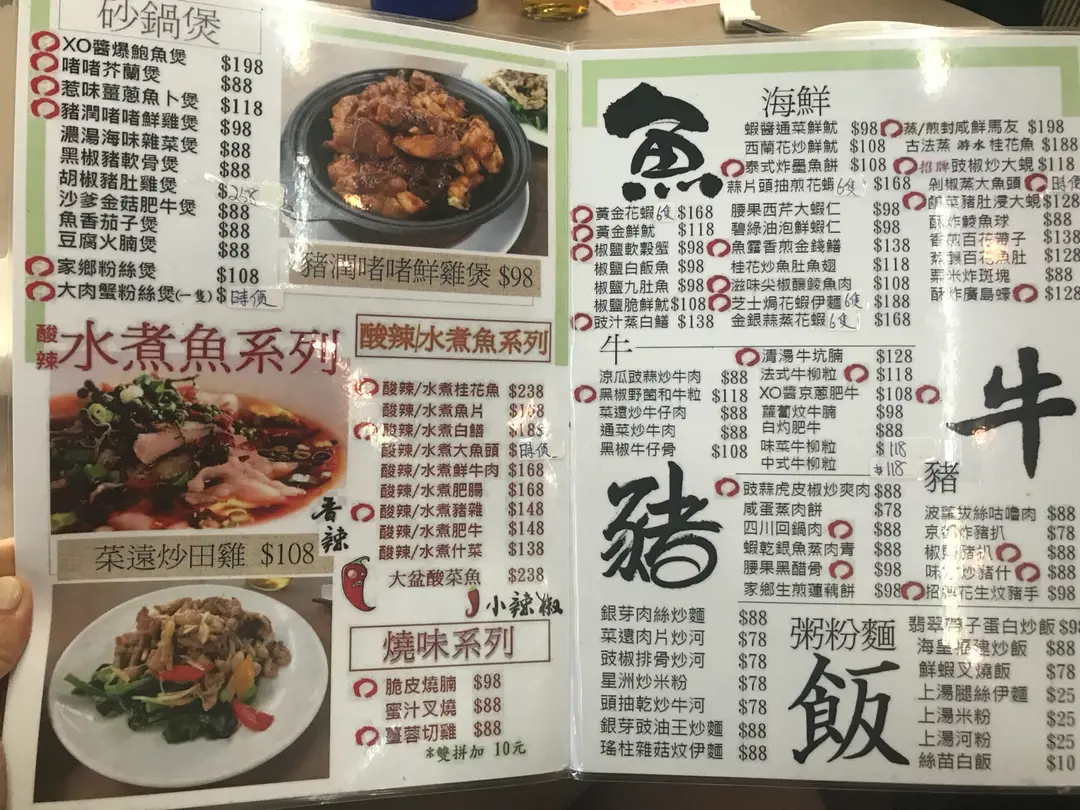 砂鍋煲
XO醬爆鮑魚煲 $198
啫啫芥蘭煲 $88
惹味薑蔥魚卜煲 $118
豬潤啫啫鮮雞煲 $98
濃湯海味雜菜煲 $88
黑椒豬軟骨煲 $88
胡椒豬肚雞煲
沙爹金菇肥牛煲 $88
魚香茄子煲 $88
豆腐火腩煲 $88
家鄉粉絲煲 $108
大肉蟹粉絲煲(一隻) $時價
豬潤啫啫鮮雞煲 $98
酸辣 水煮魚系列
香辣
菜遠炒田雞 $108
酸辣/水煮魚系列
酸辣/水煮桂花魚 $238
酸辣/水煮魚片
酸辣/水煮白鱔
酸辣/水煮大魚頭 $時價
酸辣/水煮鮮牛肉 $168
酸辣/水煮肥腸 $168
酸辣/水煮豬雜 $148
酸辣/水煮肥牛 $148
酸辣/水煮什菜 $138
大盆酸菜魚 $238
小辣椒
燒味系列
脆皮燒腩 $98
蜜汁叉燒 $88
薑蓉切雞 $88
*雙拼加 10元
魚
海鮮
蝦醬通菜鮮魷 $98
西蘭花炒鮮魷 $108
泰式炸墨魚餅 $108
蒜片頭抽煎花蝦6隻 $168
黃金花蝦6隻 $168
黃金鮮魷 $118
椒鹽軟殼蟹 $98
椒鹽白飯魚 $98
椒鹽九肚魚 $98
椒鹽脆鮮魷 $108
豉汁蒸白鱔 $138
腰果西芹大蝦仁 $98
碧綠油泡鮮蝦仁 $98
魚露香煎金錢鱔 $138
桂花炒魚肚魚翅 $118
滋味尖椒釀鯪魚肉 $108
芝士焗花蝦伊麵6隻 $188
金銀蒜蒸花蝦6隻 $168
蒸/煎封咸鮮馬友 $198
古法蒸 游水 桂花魚 $188
招牌豉椒炒大蜆 $118
剁椒蒸大魚頭 時價
鹹菜豬肚浸大蜆 $128
酥炸鯪魚球 $88
香煎百花帶子 $138
百花魚肚 $128
粟米炸斑塊 $88
酥炸廣島蠔 $128
牛
涼瓜豉蒜炒牛肉 $88
黑椒野菌和牛粒 $118
菜遠炒牛仔肉 $88
通菜炒牛肉 $88
黑椒牛仔骨 $108
清湯牛坑腩 $128
法式牛柳粒 $118
XO醬京蔥肥牛 $108
蘿蔔炆牛腩 $98
白灼肥牛 $88
味菜牛柳粒 $118
中式牛柳粒 $118
牛
豬
豬
豉蒜虎皮椒炒爽肉 $88
咸蛋蒸肉餅 $78
四川回鍋肉 $88
蝦乾銀魚蒸肉青 $88
腰果黑醋骨 $98
家鄉生煎蓮藕餅 $98
波蘿拔絲咕嚕肉 $88
京炸豬扒 $78
椒豬扒 $88
味炒豬什 $88
招牌花生炆豬手 $98
銀芽肉絲炒麵 $88
菜遠肉片炒河 $78
豉椒排骨炒河 $78
星洲炒米粉 $78
頭抽乾炒牛河 $78
銀芽豉油王炒麵 $88
瑤柱雜菇炆伊麵 $88
粥粉麵
飯
翡翠帶子蛋白炒飯
海皇福建炒飯 $88
鮮蝦叉燒飯 $78
上湯腿絲伊麵 $25
上湯米粉 $25
上湯河粉 $25
絲苗白飯 $10